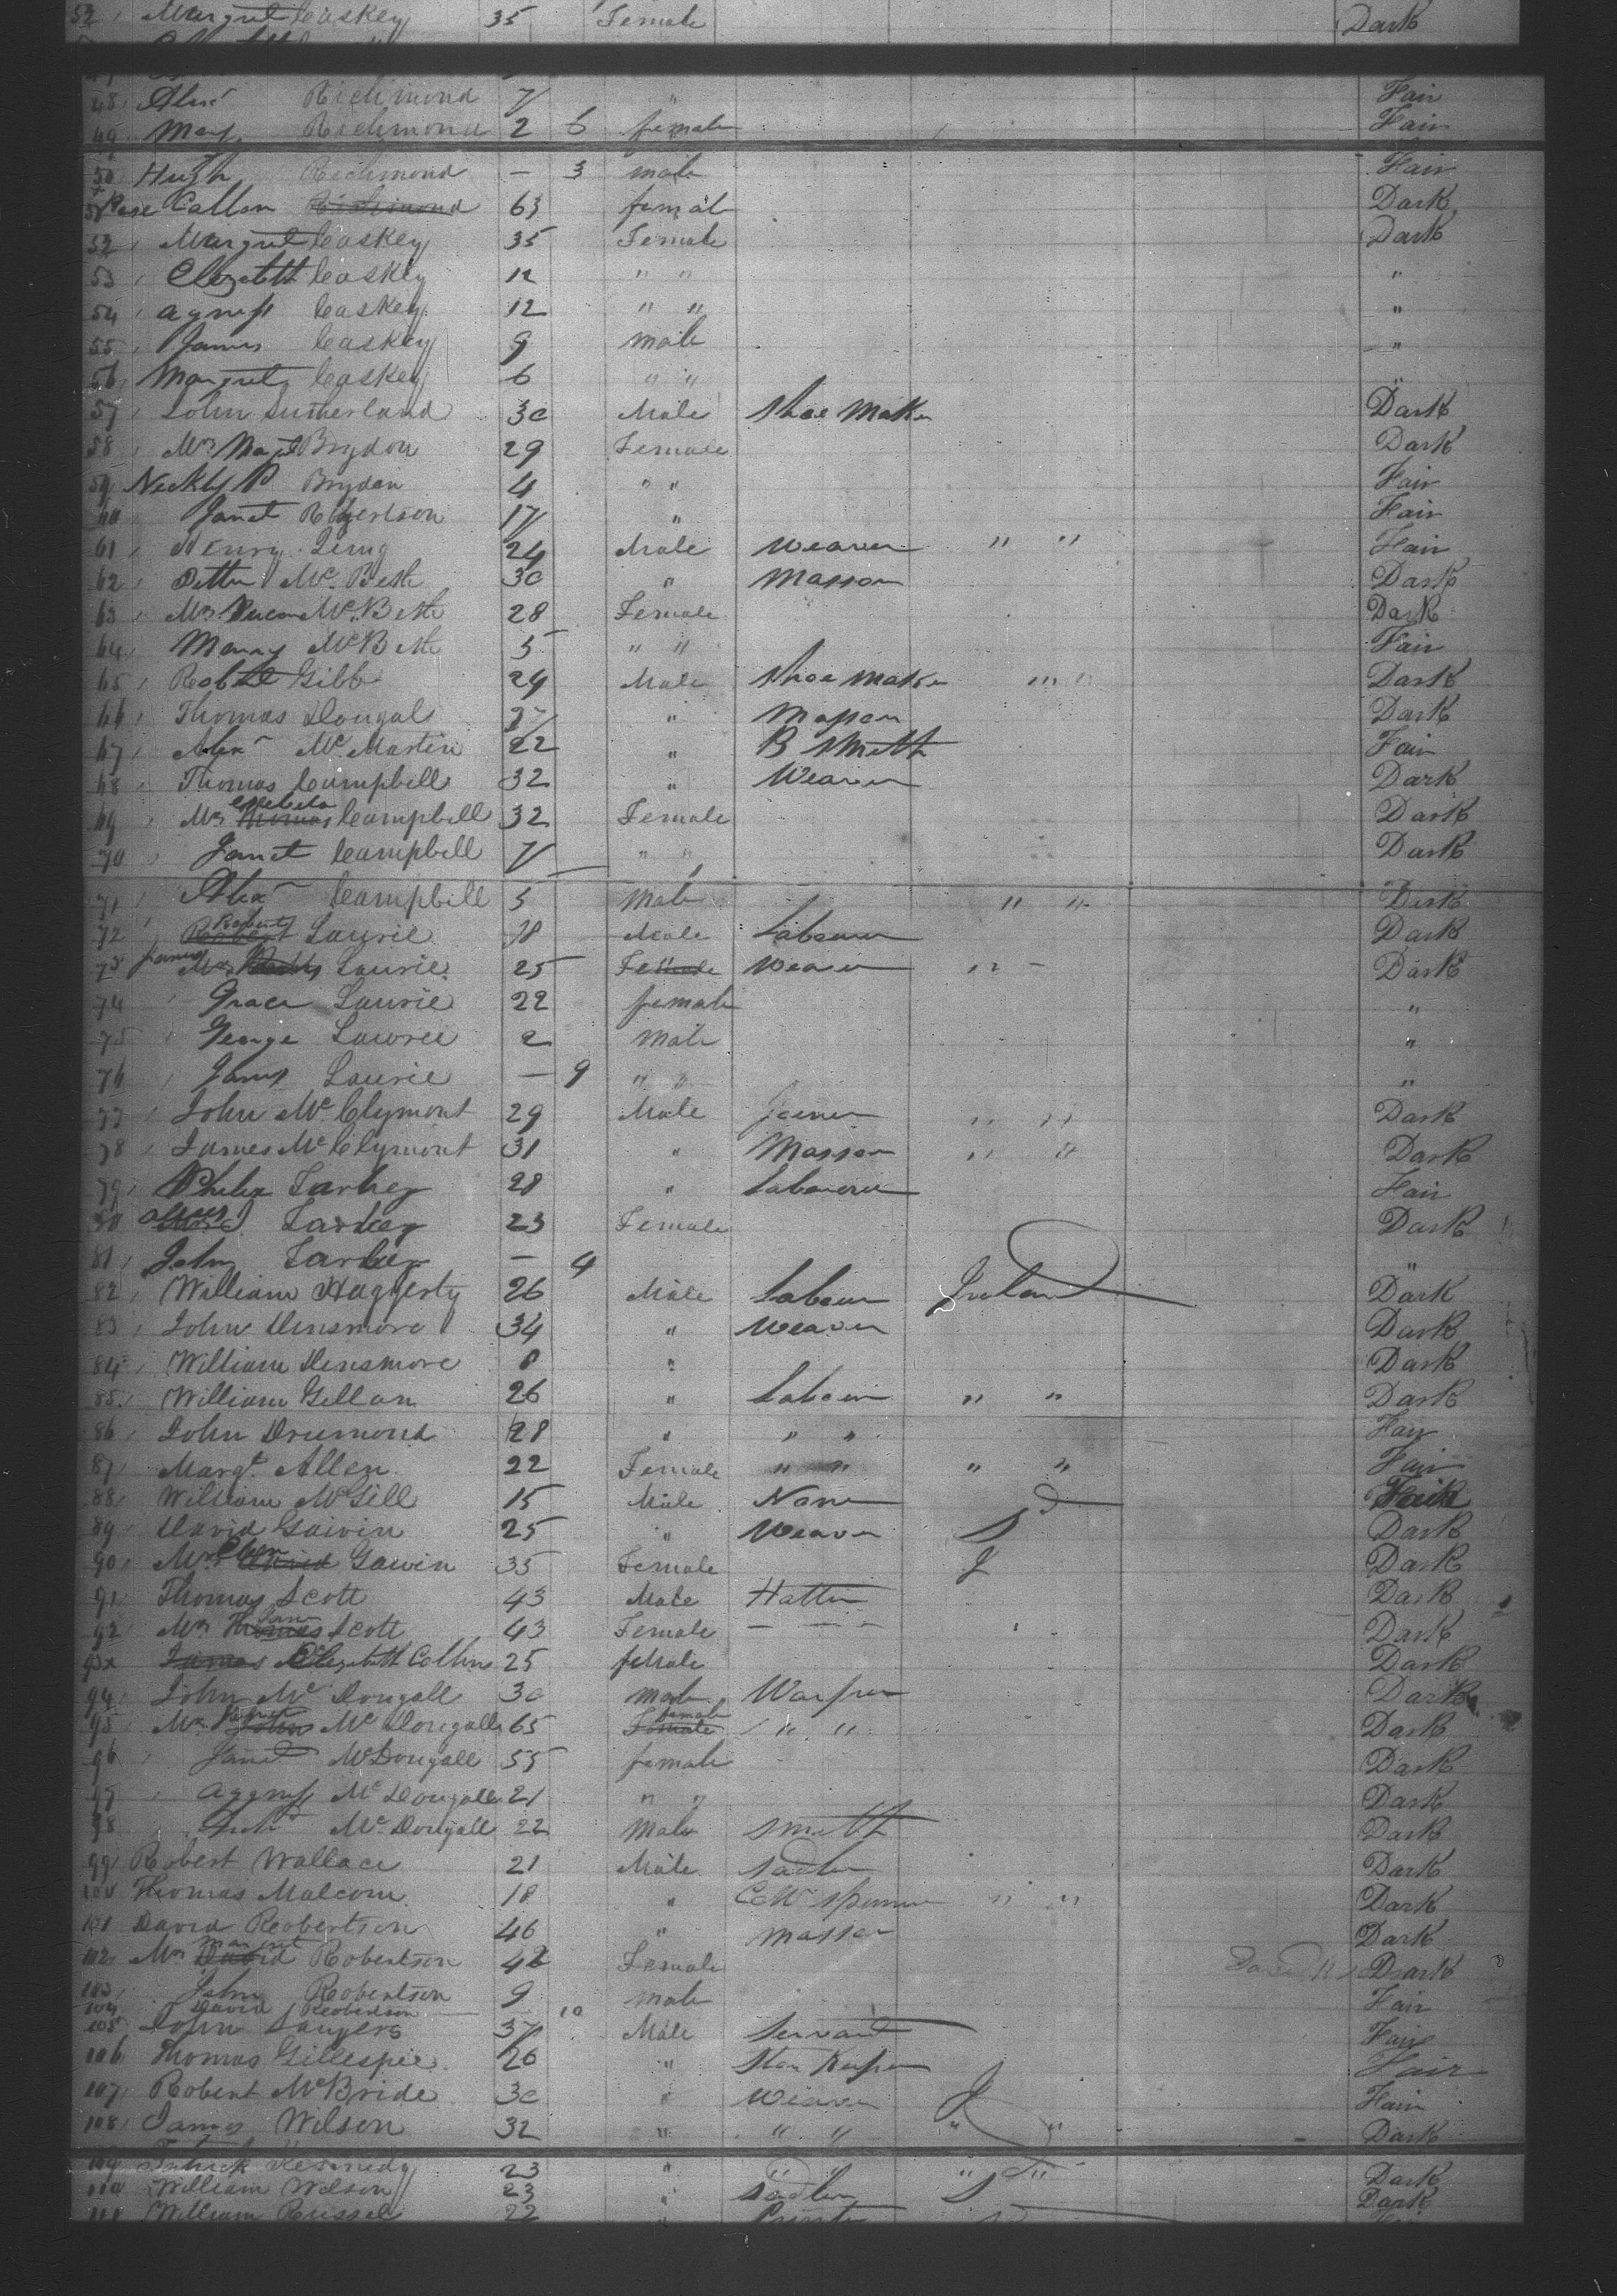 52 Margret Caskey 35 Female Dark
48 Alexr Richmond 7 " Fair
49 Mary Richmond 2 6 female Fair
50 Hugh Richmond — 3 male Fair
51 Rose Callon Richmond 63 female Dark
52 Margret Caskey 35 Female Dark
53 Elizabeth Caskey 12 " " "
54 Agness Caskey 12 " " "
55 James Caskey 9 male "
56 Margret Caskey 6 " " "
57 John Sutherland 30 Male Shoe Maker Dark
58 Mrs Brydon 29 Female Dark
59 P Brydon 4 " " Fair
60 Janet Robertson 17 " Fair
61 Henry 24 Male Weaver " " Fair
62 Petter McBeth 30 " Masson Dark
63 Mrs McBeth 28 Female Dark
64 McBeth 5 " " Fair
65 Robert Gibb 24 Male Shoe Maker " " Dark
66 Thomas Dougal " Masson Dark
67 Alexr McMartin 22 " B Smith Fair
68 Thomas Campbell 32 " Weaver Dark
69 Mrs Thomas Campbell 32 Female Dark
70 Janet Campbell 7 " " Dark
71 Alexr Campbell 5 Male " " Dark
72 Robert Laurie Male Labourer Dark
73 James Laurie 25 Female Weaver " " Dark
74 Grace Laurie 22 female "
75 George Lawrie 2 Male "
76 James Laurie — 9 " " "
77 John McClymont 29 Male Joiner " " Dark
78 James McClymont 31 " Masson " " Dark
79 Phelix Larkey 28 " Labourer Fair
80 Larkey 23 Female Dark
81 John Larkey — 4 "
82 William Haggerty 26 Male Labour Ireland Dark
83 John Dinsmore 34 " Weaver Dark
84 William Densmore 8 " Dark
85 William Gellan 26 " Labour " " Dark
86 John Drumond 28 " " " Fair
87 Margt Allen 22 Female " " " " Fair
88 William McGill 15 Male None Fair
89 David Gaivin 25 " Weaver S Dark
90 Mrs David Gawin 35 Female I Dark
91 Thomas Scott 43 Male Hatter Dark
92 Mrs Thomas Jane Scott 43 Female — — — Dark
93x James Elizabeth Collins 25 feMale Dark
94 John McDougall 30 Male Warper Dark
95 Mrs John McDougall 65 Female female " " Dark
96 Janet McDougall 55 female Dark
97 Aggness McDougall 21 " " Dark
98 McDougall 22 Male Smith Dark
99 Robert Wallace 21 Male Sadler Dark
100 Thomas Malcom 18 " Spinner " " Dark
101 David Robertson 46 " Masson Dark
102 Mrs David Margret Robertson 42 Female Dark
103 John Robertson 9 male Fair
104 David Robertson — 10
105 John Sangers 37 Male Servant Fair
106 Thomas Gillespie 26 " Stor Keeper Fair
107 Robert McBride 30 " Weaver I Fair
108 James Wilson 32 " " " " " Dark
109 Patrick Kennedy 23 " " " " " Dark
110 William Wilson 23 " Sadler S Dark
111 William Russel 22 " Printer